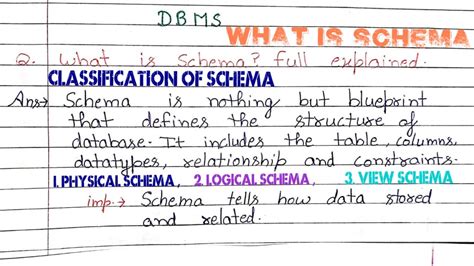 DBMS
WHAT IS SCHEMA
Q. what is Schema? full explained.
CLASSIFICATION OF SCHEMA
Ans→ Schema is nothing but blueprint
that defines the structure of
database. It includes the table, columns,
datatypes, relationship and constraints.
1. PHYSICAL SCHEMA, 2 LOGICAL SCHEMA, 3. VIEW SCHEMA
imp.→ Schema tells how data stored
and related.